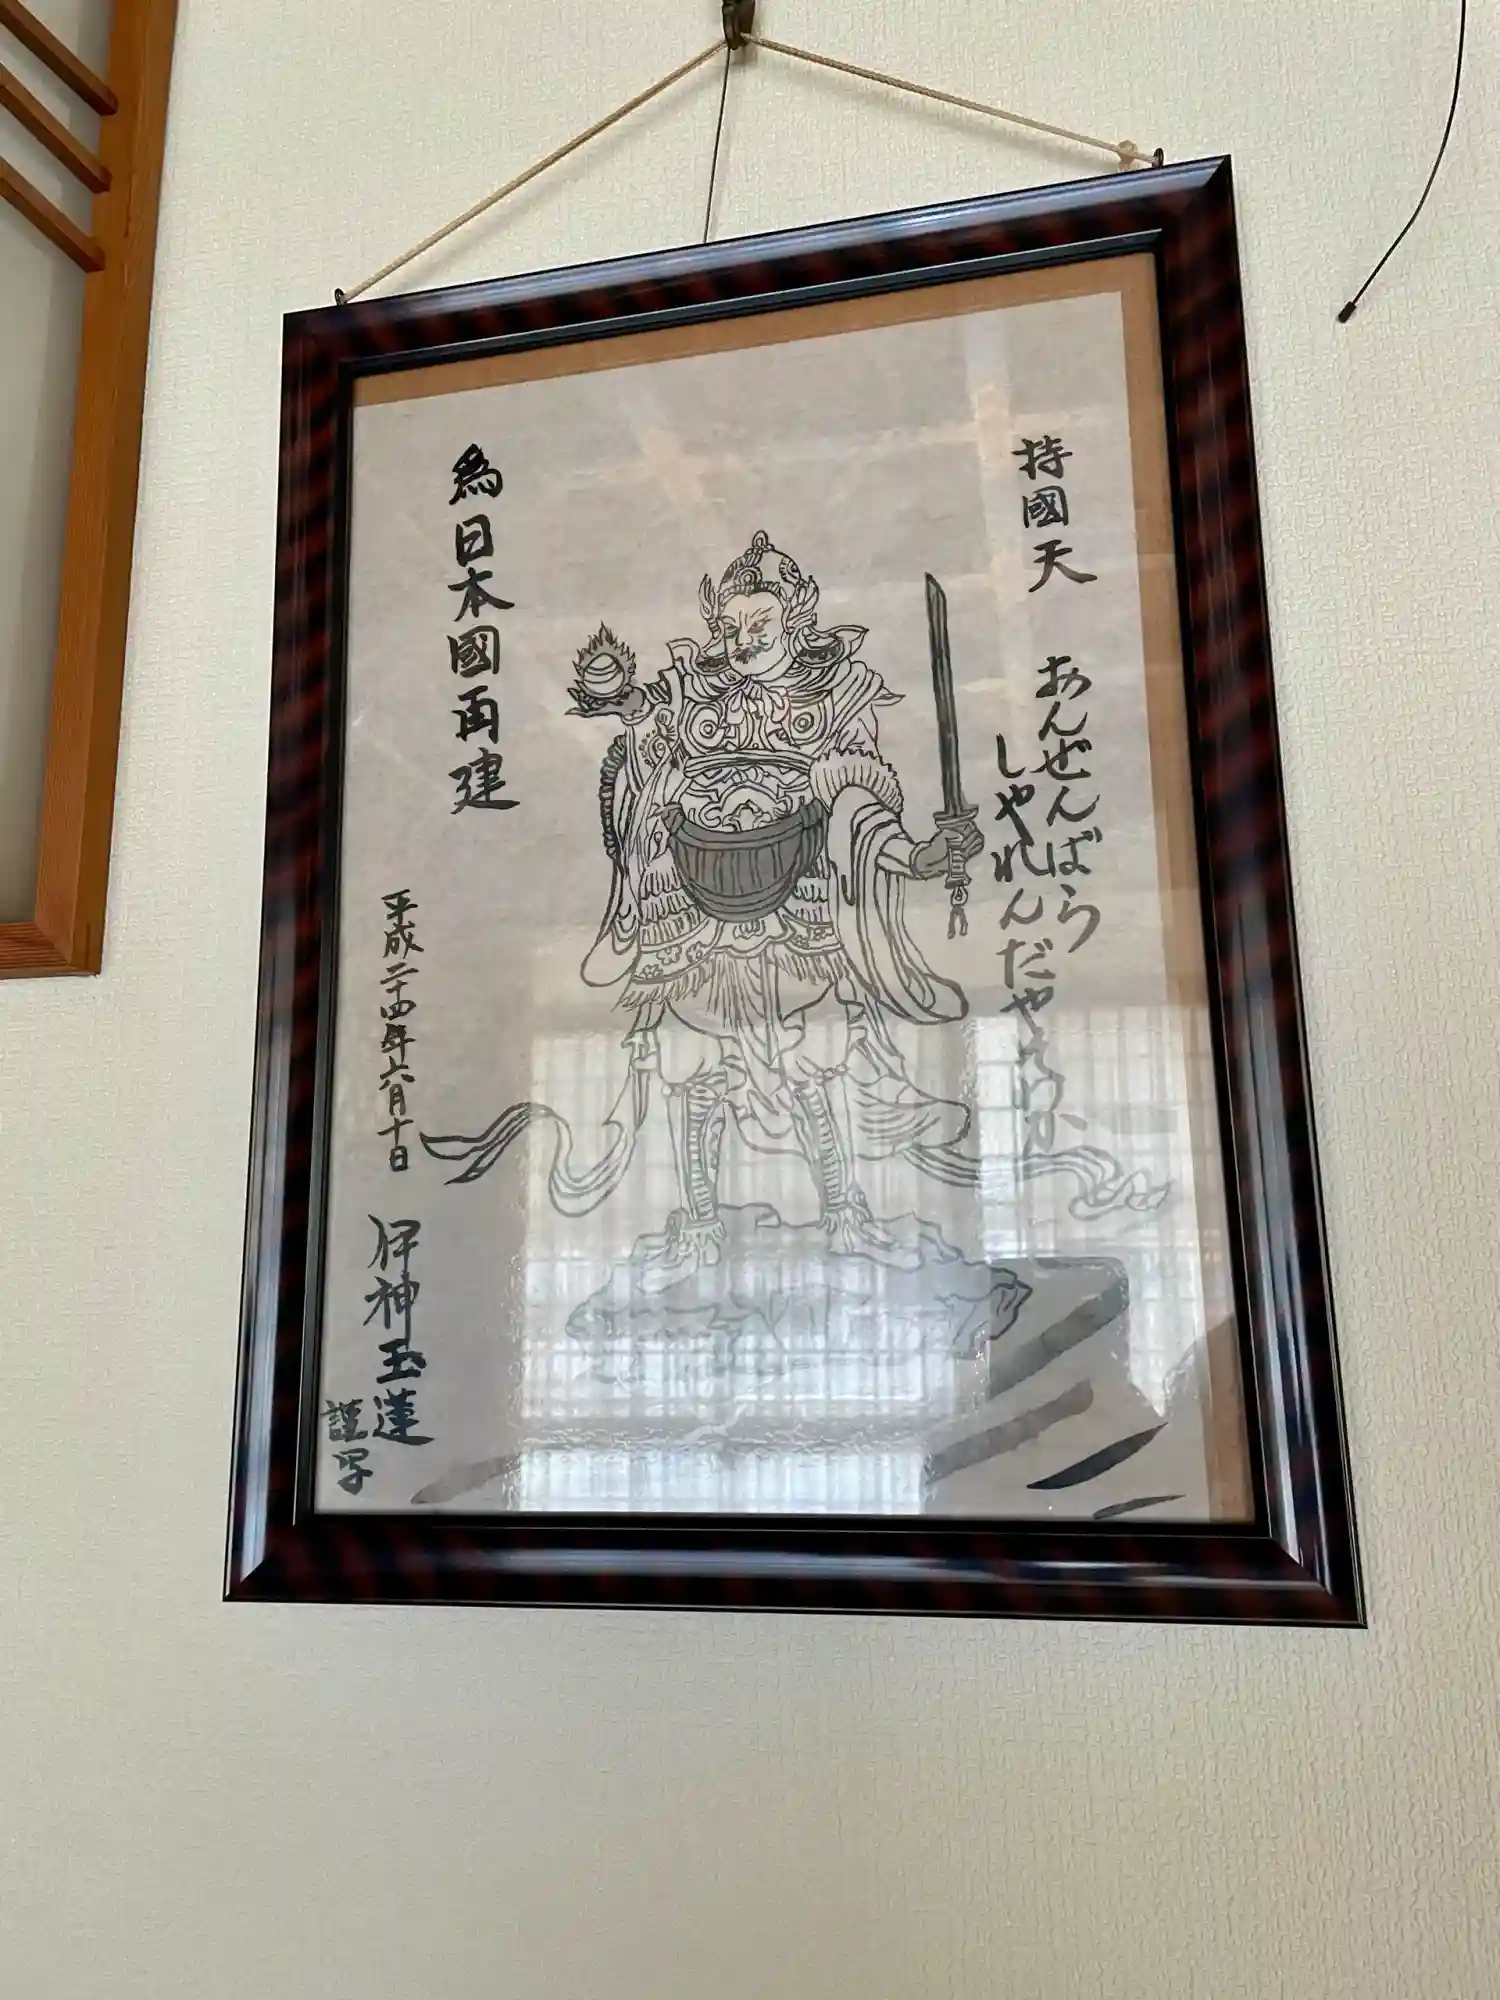 持國天
おんぜんばら
しやれんだやそわか
為日本國再建
平成二十四年六月十日
伊神玉蓮
謹写